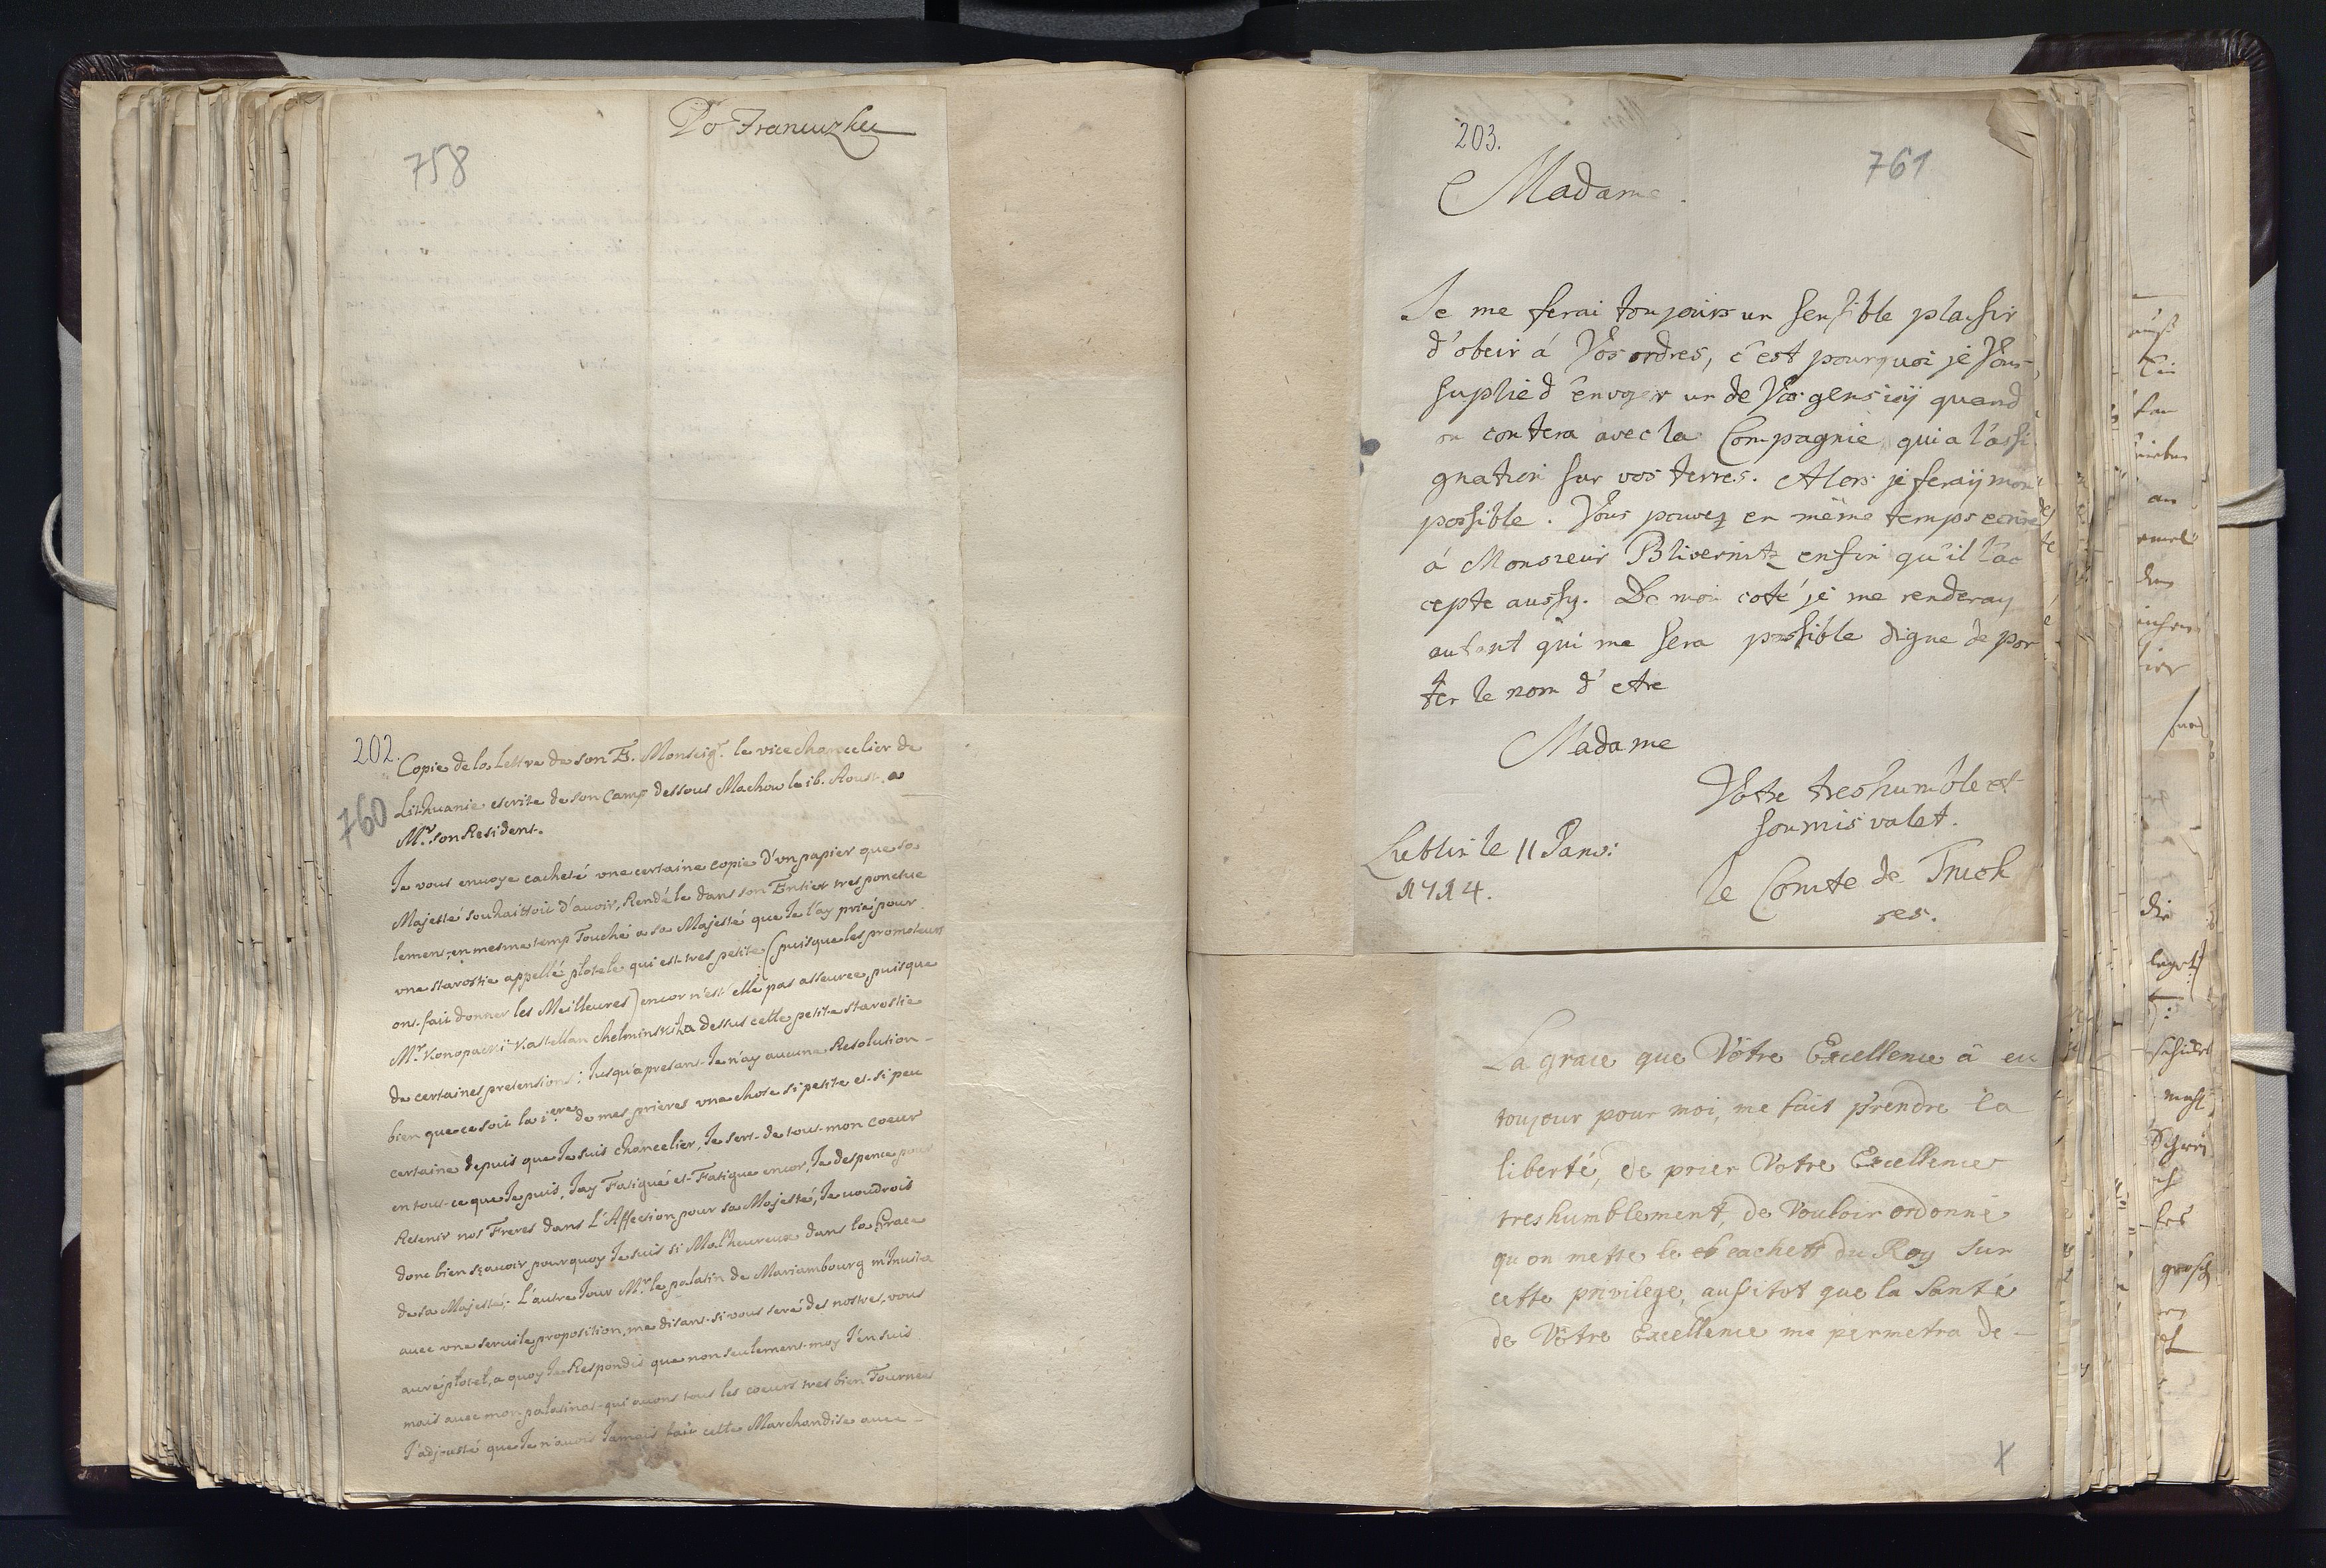 Po Francuzku
758
202.
760
Copie de la Lettre de son E. Monseigr. le vice chancelier de
Lithuanie escrite de son Camp dessous Machow le 16. Aoust a
Mr. son Resident.
Je vous envoye cacheté une certaine copie d'un papier que sa
Majesté souhaittoit d'avoir, Rendé le dans son Entier tres ponctue
lement, en mesme temp Touché a sa Majesté que Je l'ay prié pour
une starostie appellé plotele qui est tres petite (puisque les promoteurs
ont fait donner les Meilleures) encor n'est elle pas asseuree, puisque
Mr. Konopacki Kastellan Chelminski a dessus cette petite starostie
de certaines pretensions; Jusqu'a presant Je n'ay aucune Resolution
bien que ce soit la 1.ere de mes prieres une chose si petite et si peu
certaine depuis que Je suis chancelier, Je sert de tout mon coeur
en tout ce que Je puis, J'ay Fatigué et Fatigue encor, Je despence pour
Retenir nos Freres dans L'Affection pour sa Majesté, Je voudrois
donc bien sçavoir pourquoy Je suis si Malheureux dans la Grace
de sa Majesté. L'autre Jour Mr. le palatin de Mariambourg m'Invita
avec une servile proposition, me disant si vous seré des nostres, vous
auré plotel, a quoy Je Respondis que non seulement moy J'en suis
mais avec mon palatinat qui avons tous les coeurs tres bien Tournées
J'adjousté que Je n'avois Jamais fait cette Marchandise avec
203.
761
Madame
Je me ferai toujours un sensible plaisir
d'obeir á Vos ordres, c'est pourquoi je Vous
suplie d'envoyer un de Vos gens icÿ quand
on contera avec la Compagnie qui a l'assi
gnation sur vos terres. Alors je ferai mon
possible. Vous pouvez en même temps ecrire
á Monsieur Blivernitz enfin qu'il l'ac
cepte aussy. De moi coté je me renderay
autant qui me sera possible digne de por
ter le nom d'etre
Madame
Votre tres humble et
soumis valet.
Lublin le 11 Janv:
1714.
le Comte de Truch
ses.
La grace que Vôtre Excellence â eu
toujour pour moi, me fait prendre la
liberté, de prier Votre Excellence
tres humblement, de Vouloir ordonné
qu on mette le cachett du Roy sur
cette privilege, aussitot que la Santé
de Vôtre Excellence me permetra de